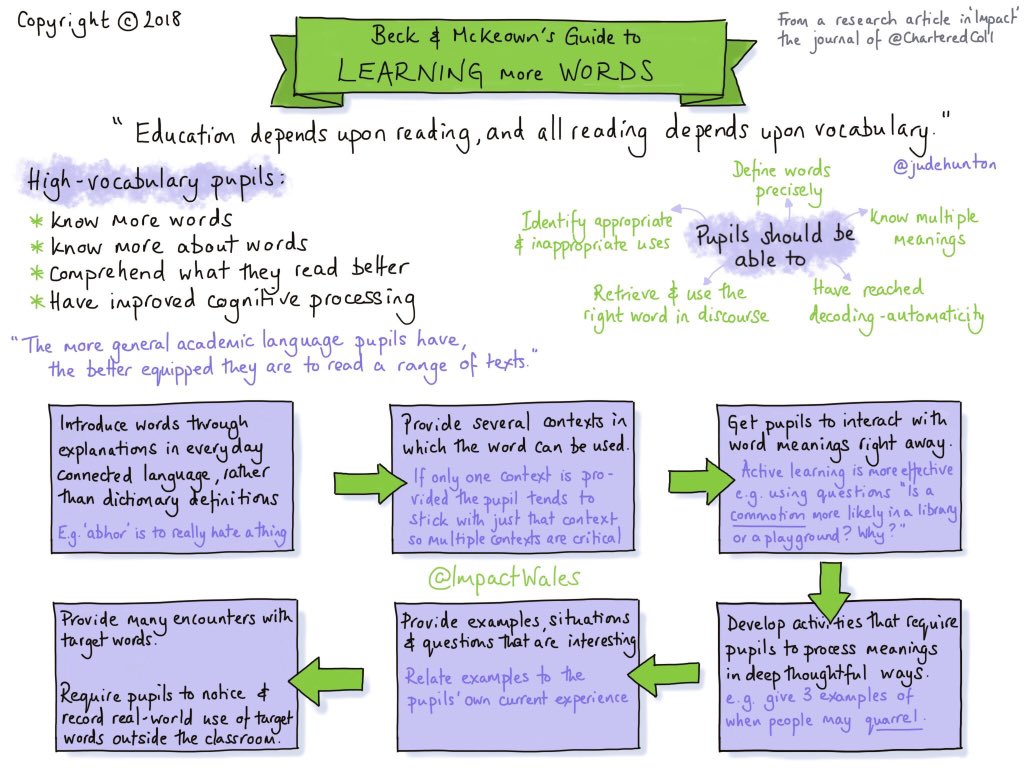 Copyright © 2018
From a research article in 'Impact'
the journal of @CharteredColl
Beck & McKeown's Guide to
LEARNING more WORDS
"Education depends upon reading, and all reading depends upon vocabulary."
@judehunton
High-vocabulary pupils:
* Know more words
* Know more about words
* Comprehend what they read better
* Have improved cognitive processing
Pupils should be
able to
Define words
precisely
Identify appropriate
& inappropriate uses
Know multiple
meanings
Retrieve & use the
right word in discourse
Have reached
decoding-automaticity
"The more general academic language pupils have,
the better equipped they are to read a range of texts."
Introduce words through
explanations in everyday
connected language, rather
than dictionary definitions
E.g. 'abhor' is to really hate a thing
Provide several contexts in
which the word can be used.
If only one context is pro-
vided the pupil tends to
stick with just that context
so multiple contexts are critical
Get pupils to interact with
word meanings right away.
Active learning is more effective
e.g. using questions "Is a
commotion more likely in a library
or a playground? Why?"
@ImpactWales
Develop activities that require
pupils to process meanings
in deep thoughtful ways.
e.g. give 3 examples of
when people may quarrel.
Provide examples, situations
& questions that are interesting
Relate examples to the
pupils' own current experience
Provide many encounters with
target words.
Require pupils to notice &
record real-world use of target
words outside the classroom.